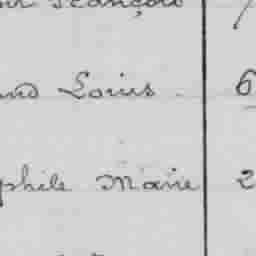 François
Louis 6
phile Marie 2